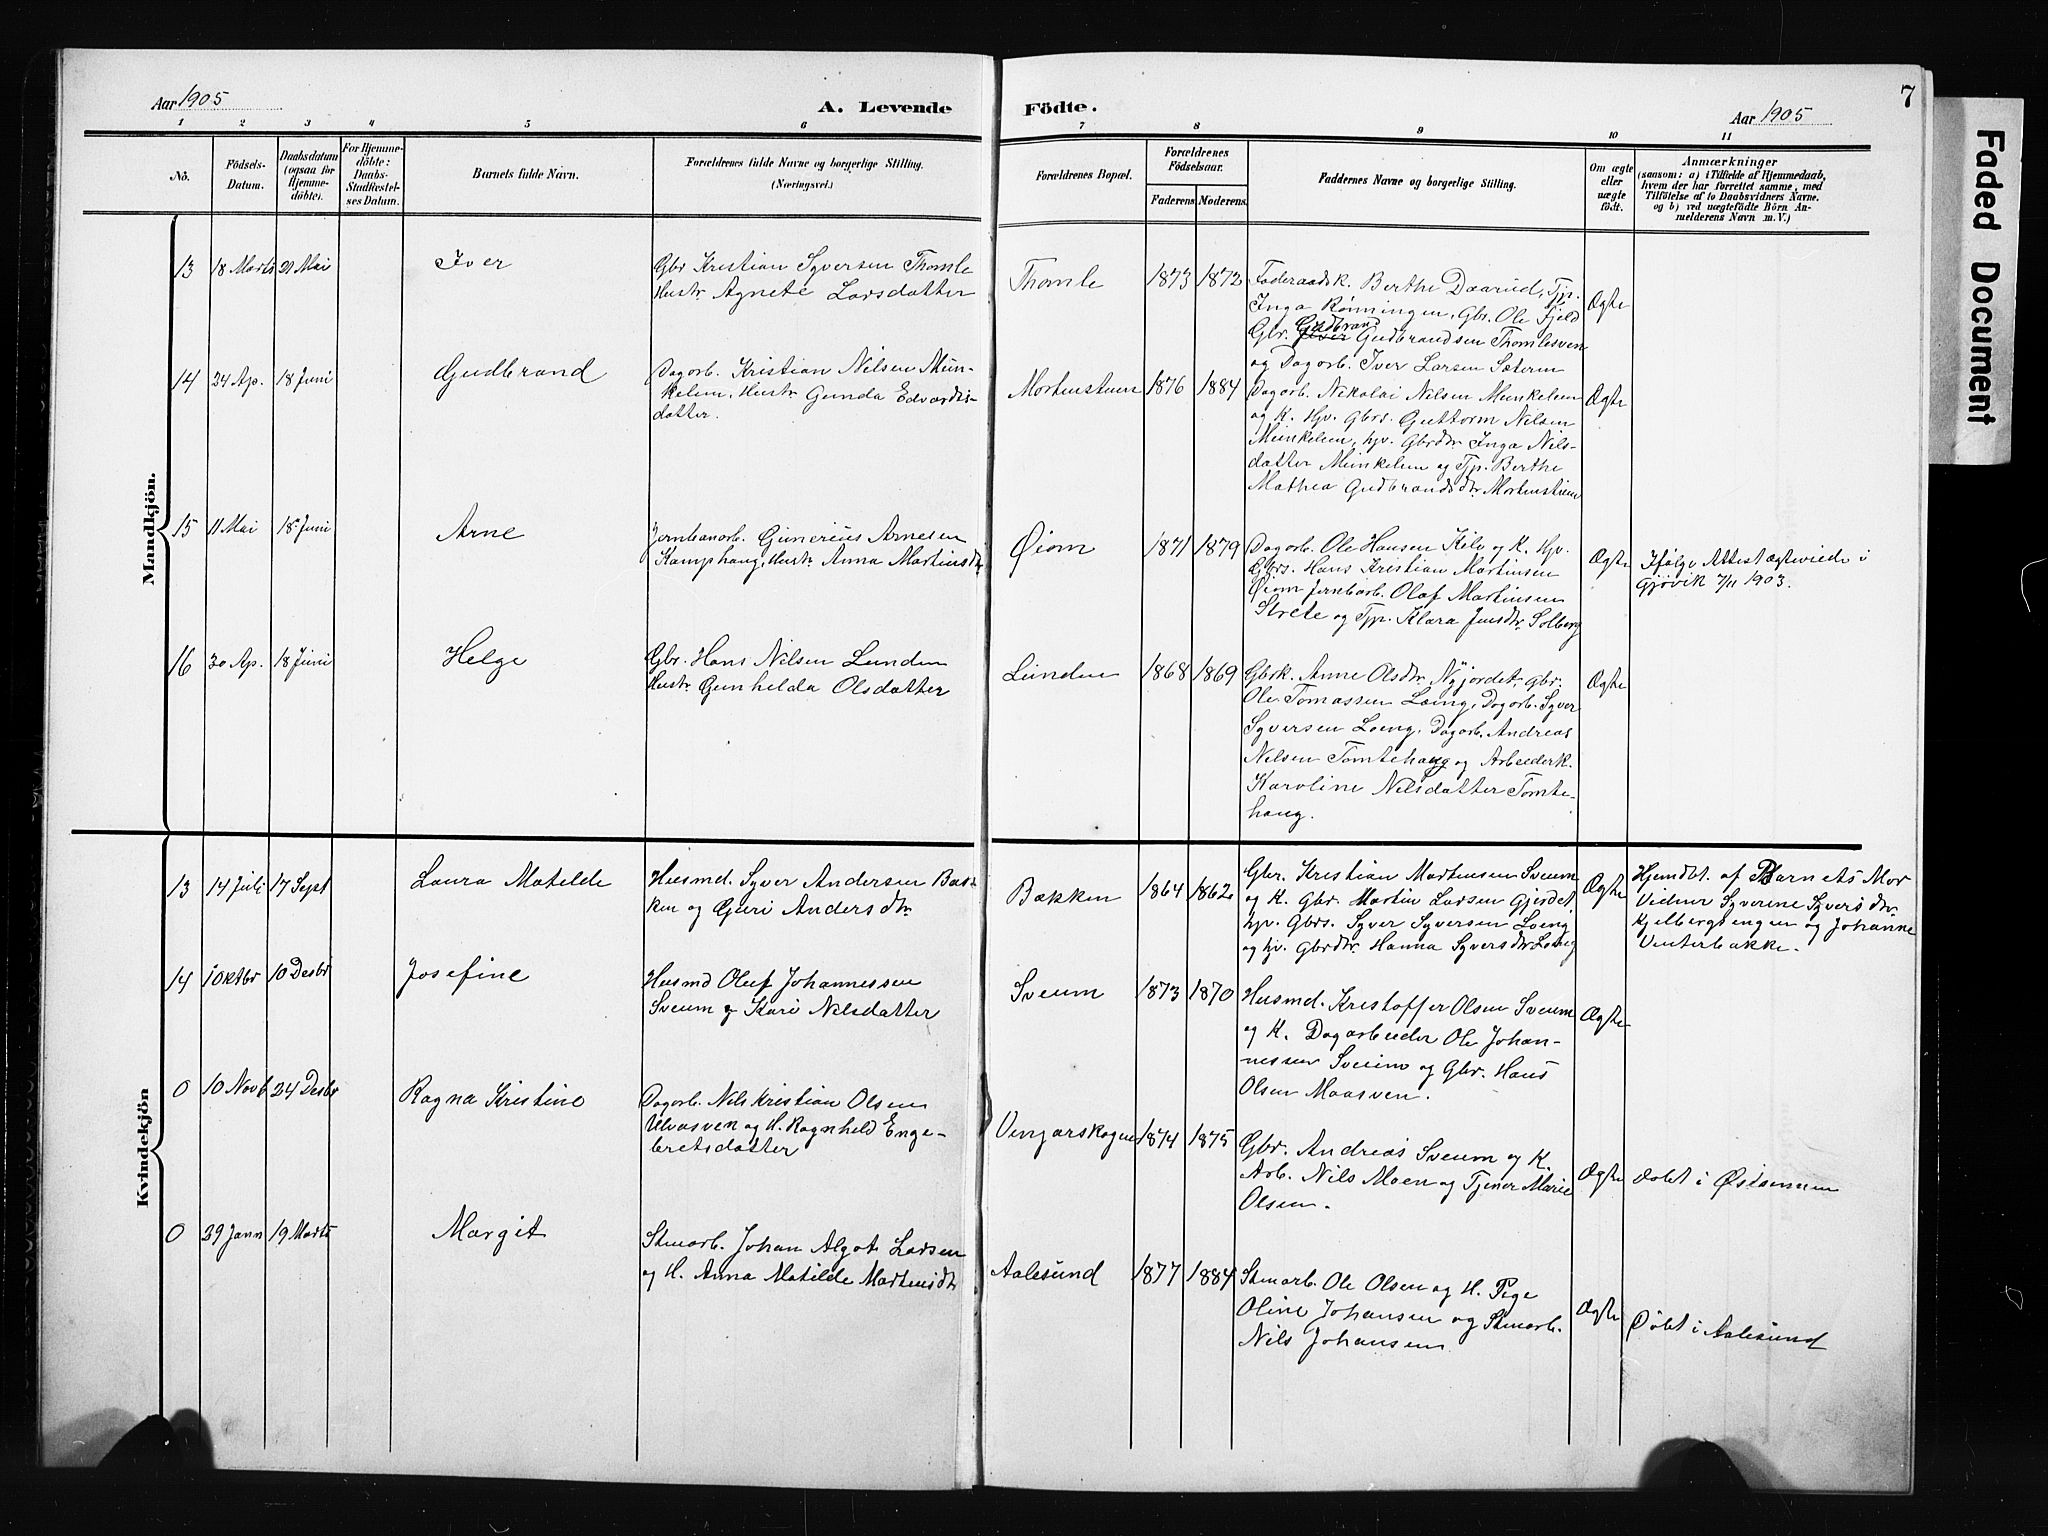 Aar 1905
A. Levende
Födte.
Aar 1905
7
Faded Document
1 2 3 4 5 6 7 8 9 10 11
No.
Födsels-
Datum.
Daabsdatum
(ogsaa for
Hjemme-
döbte).
For Hjemme-
döbte:
Daabs-
Stadfæstel-
ses Datum.
Barnets fulde Navn.
Forældrenes fulde Navne og borgerlige Stilling.
(Næringsvei.)
Forældrenes Bopæl.
Forældrenes
Födselsaar.
Faderens
Moderens
Faddernes Navne og borgerlige Stilling.
Om ægte
eller
uægte
födt.
Anmærkninger
(saasom: a) i Tilfælde af Hjemmedaab,
hvem der har forrettet samme, med
Tilföielse af to Daabsvidners Navne.
og b) ved uægtefödte Börn An-
melderens Navn m. V.)
Mandkjön.
13 18 Marts 21 Mai
Iver
Gbr Kristian Syversen Thomle
Hustr Agnete Larsdatter
Thomle
1873 1872
Föderaadsk. Berthe Daarud, Tjp.
Inga Rønningen, Gbr. Ole Fjeld
Gudbrand
Gbr. Iver Gudbrandsen Thomlesven
og Dagarb. Iver Larsen Sæterm
Ægte
14 24 Ap. 18 Juni
Gudbrand
Dagarb. Kristian Nilsen Mün-
kelien, Hustr Gunda Edvards-
datter.
Mortenstuen
1876 1884
Dagarb. Nikolai Nilsen Münkelien
og K. Hjv. Gbrs. Guttorm Nilsen
Münkelien, hjv. Gbrdtr Inga Nils-
datter Münkelien og Tjp. Berthe
Mathea Gudbrandsdtr Mortenstuen
Ægte
15 11 Mai 18 Juni
Arne
Jernbanarb. Gunerius Arnesen
Kamphaug, Hustr Anna Martinsdtr
Øiom
1871 1879
Dagarb. Ole Hansen Kilo og K. Hjv.
Gbrs. Hans Kristian Martinsen
Øiom Jernbarb. Olaf Martinsen
Strete og Tjp. Klara Jensdtr Solberg
Ægte
Ifølge Attest ægteviede i
Gjøvik 7/11 1903.
16 30 Ap. 18 Juni
Helge
Gbr. Hans Nilsen Lunden
Hustr Gunhilda Olsdatter
Lunden
1868 1869
Gbrk. Anne Olsdtr Nyjordet, Gbr.
Ole Tomassen Loeng, Dagarb. Syver
Syversen Loeng, Dagarb. Andreas
Nilsen Tomtehaug og Arbeiderk.
Karoline Nilsdatter Tomte-
haug.
Ægte
Kvindekjön
13 14 Juli 17 Sept
Laura Matilde
Husmd. Syver Andersen Bæk-
ken og Guri Andersdtr
Bækken
1864 1862
Gbr. Kristian Martinsen Sveum
og K. Gbr. Martin Larsen Gjerdet
hjv. Gbrs. Syver Syversen Loeng
og hjv. Gbrdtr. Hanna Syversdtr Loeng
Ægte
Hjemdbt. af Barnets Mor
Vidner Syverine Syversdtr
Kjelbergsengen og Johanne
Vinterbakke.
14 1 Oktbr 10 Desbr
Josefine
Husmd Oluf Johannessen
Sveum og Kari Nilsdatter
Sveum
1873 1870
Husmd. Kristoffer Olsen Sveum
og K. Dagarbeider Ole Johan-
nessen Sveum og Gbr. Hans
Olsen Maasven.
Ægte
0 10 Novb 24 Desbr
Ragna Kristine
Dagarb. Nils Kristian Olsen
Ulvasven og H. Ragnheld Enge-
bretsdatter
Vingarskogen
1874 1875
Gbr. Andreas Sveum og K.
Arb. Nils Moen og Tjener Marie
Olsen.
Ægte
Døbt i Østsinnen
0 29 Jann 19 Marts
Margit
Stenarb. Johan Algot Larsen
og H. Anna Matilde Martinsdtr
Aalesund
1877 1884
Stenarb. Ole Olsen og H. Pige
Oline Johansen og Stenarb.
Nils Johansen
Ægte
Døbt i Aalesund